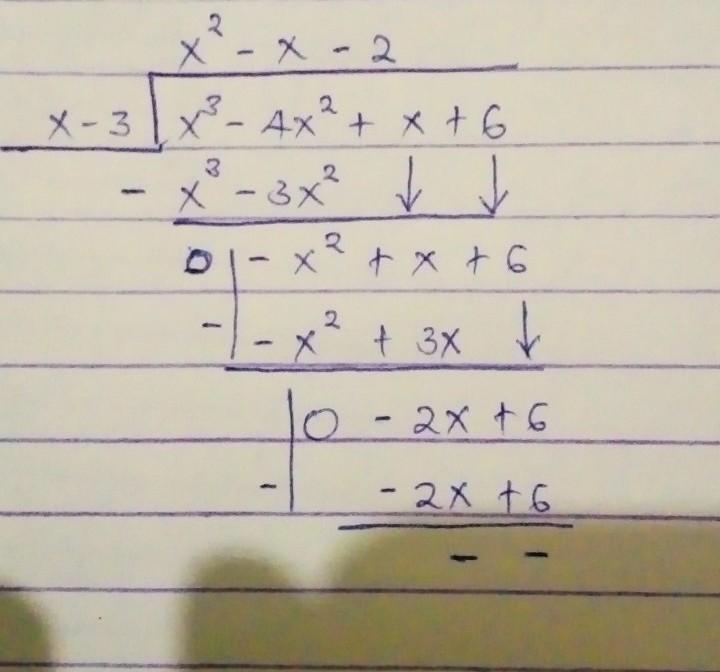 x² - x - 2
x - 3 x³ - 4x² + x + 6
- x³ - 3x² ↓ ↓
0 | - x² + x + 6
- | - x² + 3x ↓
| 0 - 2x + 6
- | - 2x + 6
- -